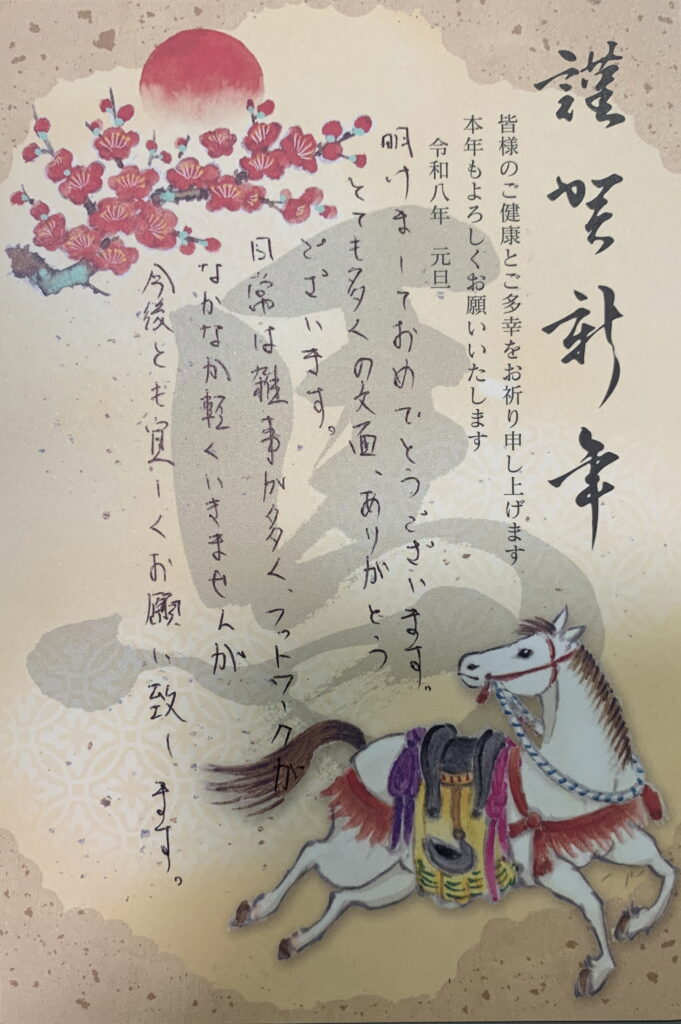 謹賀新年
皆様のご健康とご多幸をお祈り申し上げます
本年もよろしくお願いいたします
令和八年 元旦
明けましておめでとうございます。
とても多くの文面、ありがとう
ございます。
日常は雑事が多く、フットワークが
なかなか軽くいきませんが
今後とも宜しくお願い致します。
馬